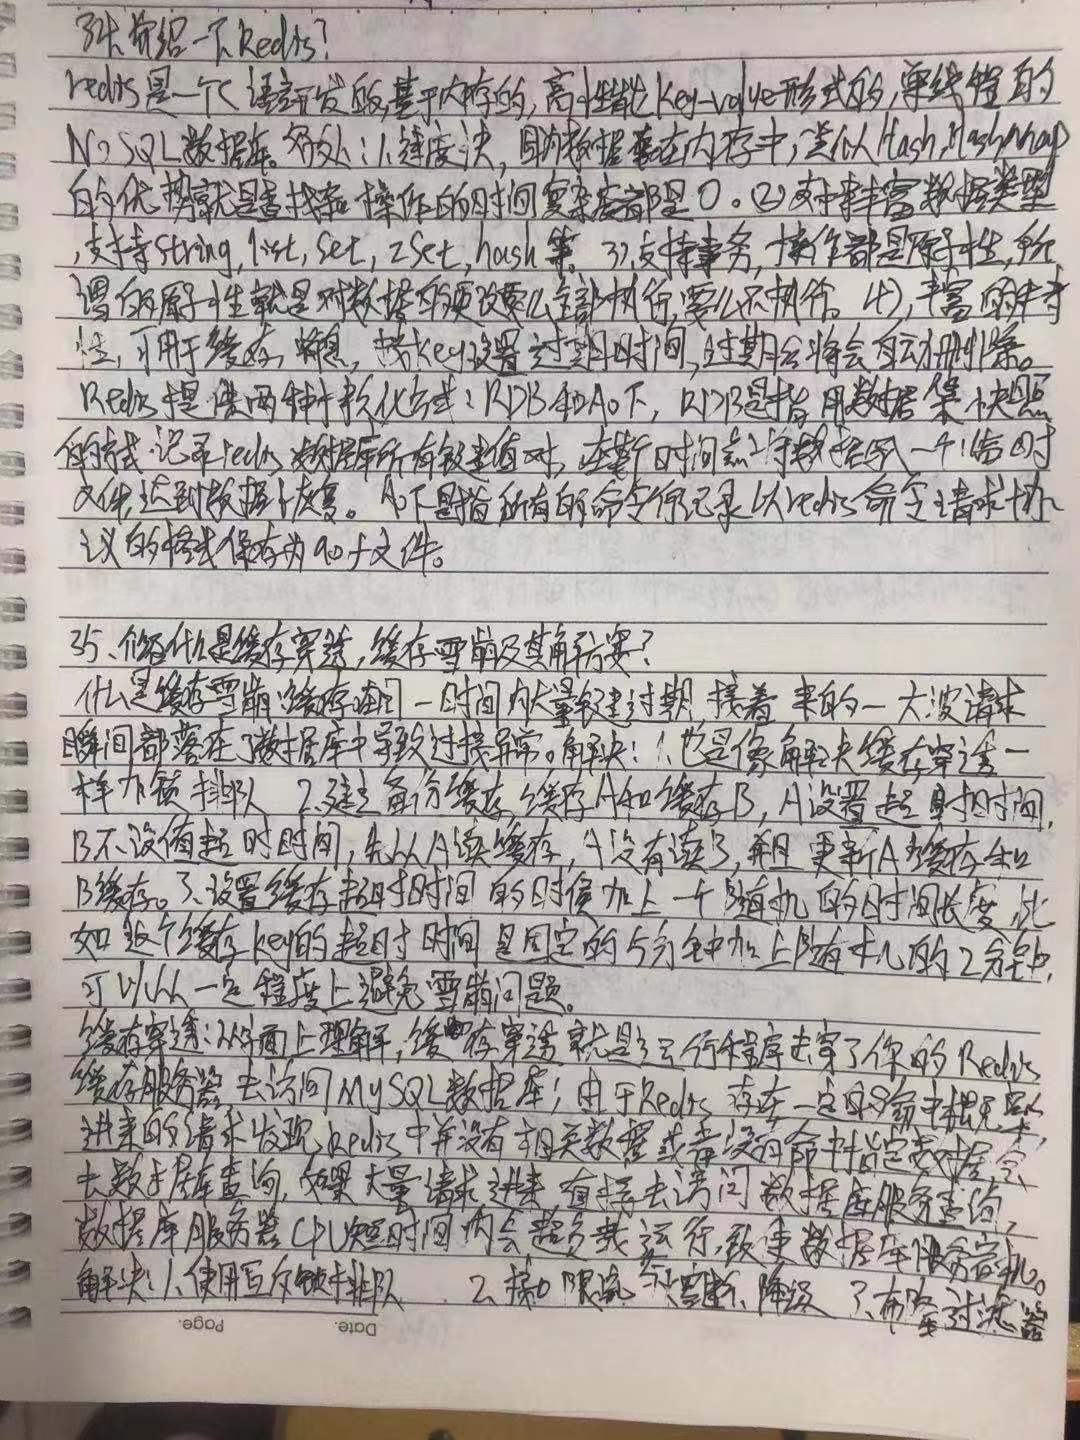 34、介绍一下Redis?
redis是一个C语言开发的,基于内存的,高性能key-value形式的,单线程的
NoSQL数据库。好处:1、速度快,因为数据存在内存中,类似Hash,HashMap
的优势就是查找和操作的时间复杂度都是O。(2)支持丰富数据类型
,支持string,list,set,zset,hash等。3)支持事务,操作都是原子性,所
谓的原子性就是对数据的更改要么全部执行,要么不执行。4),丰富的特
性,可用于缓存,消息,按key设置过期时间,过期后将会自动删除。
Redis提供两种持久化方式:RDB和Aof,RDB是指用数据集快照
的方式记录redis数据库所有键值对,在某个时间点将数据写入一个临时
文件,达到数据恢复。Aof是指所有的命令行记录以redis命令请求协
议的格式保存为aof文件。
35、介绍什么是缓存穿透,缓存雪崩及其解决方案?
什么是缓存雪崩:缓存同一时间内大量键过期,接着来的一大波请求
瞬间都落在了数据库中导致连接异常。解决:1、也是像解决缓存穿透一
样加锁排队 2、建立备份缓存,缓存A和缓存B,A设置超时时间,
B不设值超时时间,先从A读缓存,A没有读B,并且更新A缓存和
B缓存。3、设置缓存超时时间的时候加上一个随机的时间长度,比
如这个缓存key的超时时间是固定的5分钟加上随机的2分钟,
可以从一定程度上避免雪崩问题。
缓存穿透:从字面上理解,缓存穿透就是运行程序去穿了你的Redis
缓存服务器去访问MySQL数据库;由于Redis存在一定的
进来的请求发现,Redis中并没有相关数据或者没有命中指定数据,会
去数据库查询,如果大量请求进来直接去访问数据库服务查询,
数据库服务器CPU短时间内会超负载运行,致使数据库服务宕机。
解决:1、使用互斥锁排队 2、接口限流与熔断、降级 3、布隆过滤器
Date.
Page.